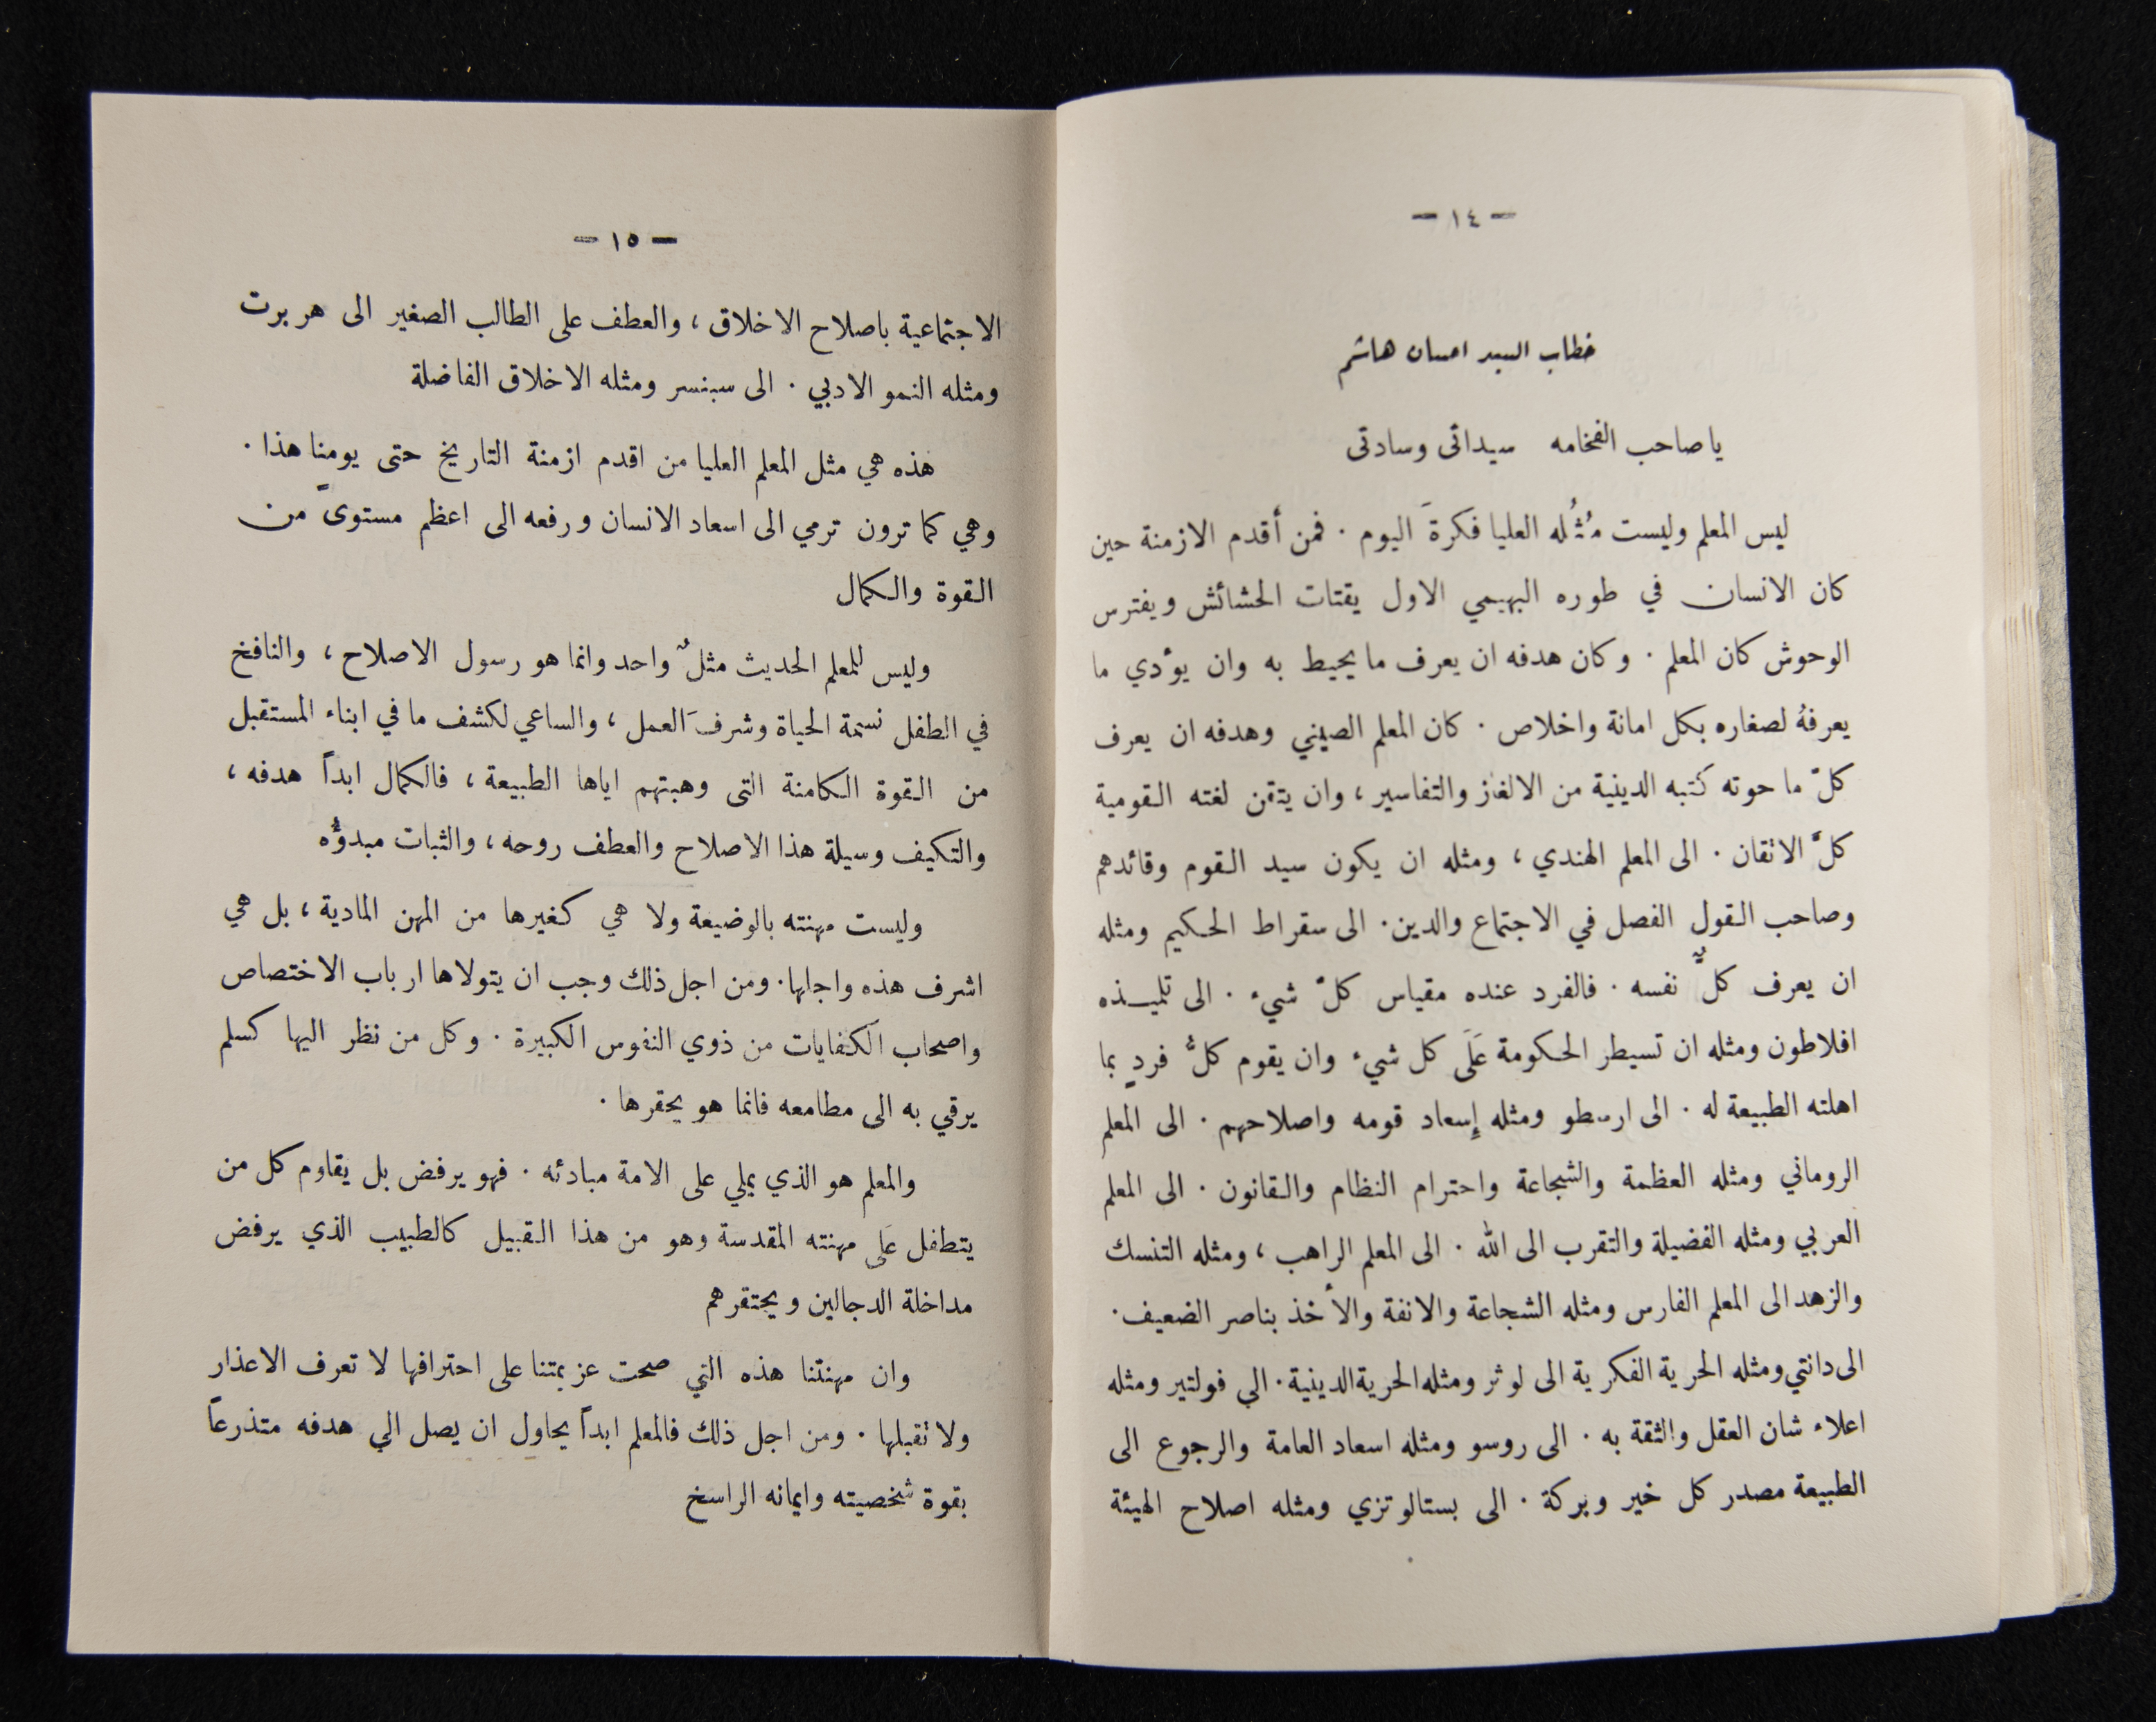 - ١٤ -
خطاب السيد احسان هاشم
يا صاحب الفخامه سيداتى وسادتى
ليس المعلم وليست مُثُله العليا فكرةَ اليوم . فمن أقدم الازمنة حين
كان الانسان في طوره البهيمي الاول يقتات الحشائش ويفترس
الوحوش كان المعلم . وكان هدفه ان يعرف ما يحيط به وان يؤدي ما
يعرفهُ لصغاره بكل امانة واخلاص . كان المعلم الصيني وهدفه ان يعرف
كلّ ما حوته كتبه الدينية من الالغاز والتفاسير ، وان يتقن لغته القومية
كلَّ الاتقان . الى المعلم الهندي ، ومثله ان يكون سيد القوم وقائدهم
وصاحب القول الفصل في الاجتماع والدين . الى سقراط الحكيم ومثله
ان يعرف كلٌّ نفسه . فالفرد عنده مقياس كلّ شيء . الى تلميذه
افلاطون ومثله ان تسيطر الحكومة عَلَى كل شيء وان يقوم كلُّ فردٍ بما
اهلته الطبيعة له . الى ارسطو ومثله إسعاد قومه واصلاحهم . الى المعلم
الروماني ومثله العظمة والشجاعة واحترام النظام والقانون . الى المعلم
العربي ومثله الفضيلة والتقرب الى الله . الى المعلم الراهب ، ومثله التنسك
والزهد الى المعلم الفارس ومثله الشجاعة والانفة والأخذ بناصر الضعيف .
الى دانتي ومثله الحرية الفكرية الى لوثر ومثله الحرية الدينية . الي فولتير ومثله
اعلاء شان العقل والثقة به . الى روسو ومثله اسعاد العامة والرجوع الى
الطبيعة مصدر كل خير وبركة . الى بستالوتزي ومثله اصلاح الهيئة
- ١٥ -
الاجتماعية باصلاح الاخلاق ، والعطف على الطالب الصغير الى هربرت
ومثله النمو الادبي . الى سبنسر ومثله الاخلاق الفاضلة
هذه هي مثل المعلم العليا من اقدم ازمنة التاريخ حتى يومنا هذا .
وهي كما ترون ترمي الى اسعاد الانسان ورفعه الى اعظم مستوىً من
القوة والكمال
وليس للمعلم الحديث مثلٌ واحد وانما هو رسول الاصلاح ، والنافخ
في الطفل نسمة الحياة وشرفَ العمل ، والساعي لكشف ما في ابناء المستقبل
من القوة الكامنة التى وهبتهم اياها الطبيعة ، فالكمال ابداً هدفه ،
والتكيف وسيلة هذا الاصلاح والعطف روحه ، والثبات مبدؤُه
وليست مهنته بالوضيعة ولا هي كغيرها من المهن المادية ، بل هي
اشرف هذه واجلها . ومن اجل ذلك وجب ان يتولاها ارباب الاختصاص
واصحاب الكفايات من ذوي النفوس الكبيرة . وكل من نظر اليها كسلم
يرقي به الى مطامعه فانما هو يحقرها .
والمعلم هو الذي يملي على الامة مبادئه . فهو يرفض بل يقاوم كل من
يتطفل عَلى مهنته المقدسة وهو من هذا القبيل كالطبيب الذي يرفض
مداخلة الدجالين ويحتقرهم
وان مهنتنا هذه التي صحت عزيمتنا على احترافها لا تعرف الاعذار
ولا تقبلها . ومن اجل ذلك فالمعلم ابداً يحاول ان يصل الي هدفه متذرعاً
بقوة شخصيته وايمانه الراسخ